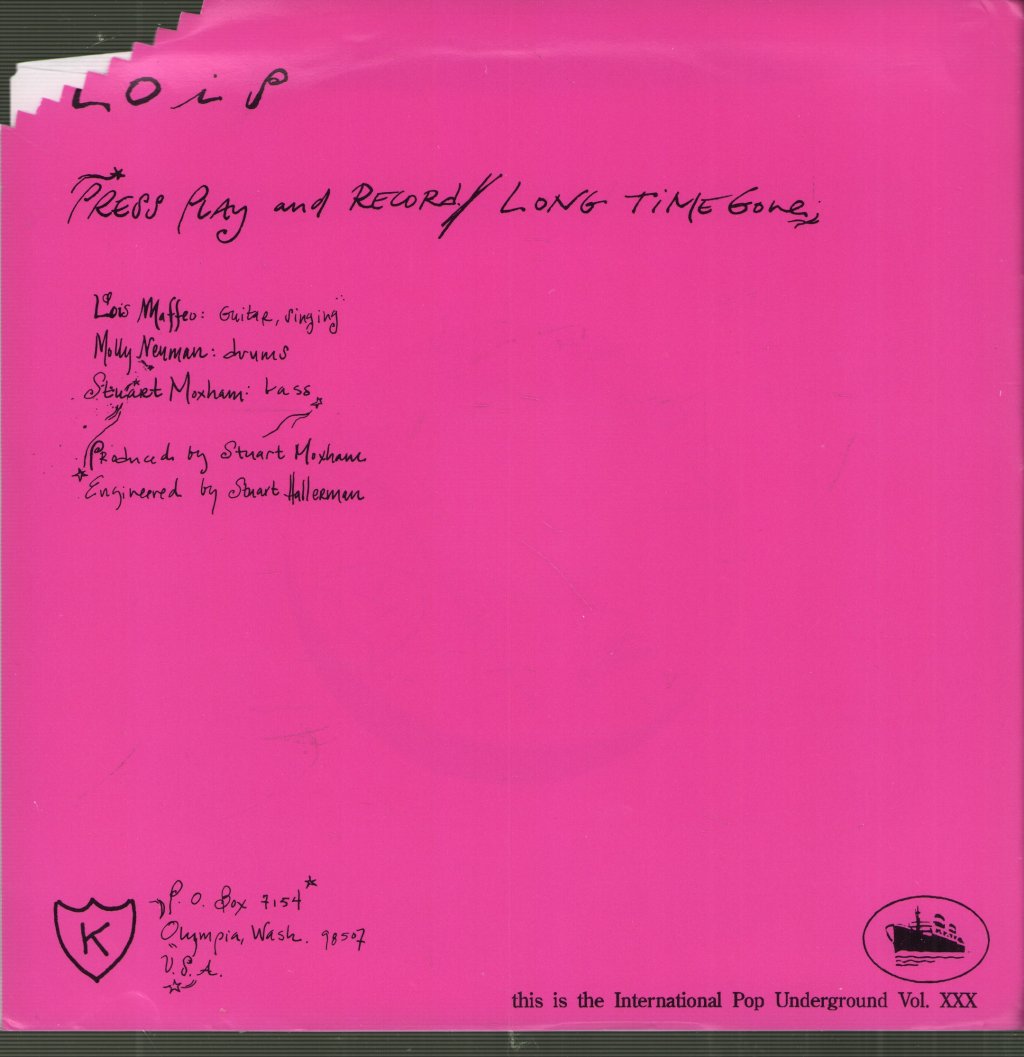 Lois
PRESS PLAY and RECORD / LONG TiME Gone
Lois Maffeo: Guitar, singing
Molly Neuman: drums
Stuart Moxham: bass
Produced by Stuart Moxham
Engineered by Stuart Hallerman
K
P.O. Box 7154
Olympia, Wash. 98507
U.S.A.
this is the International Pop Underground Vol. XXX